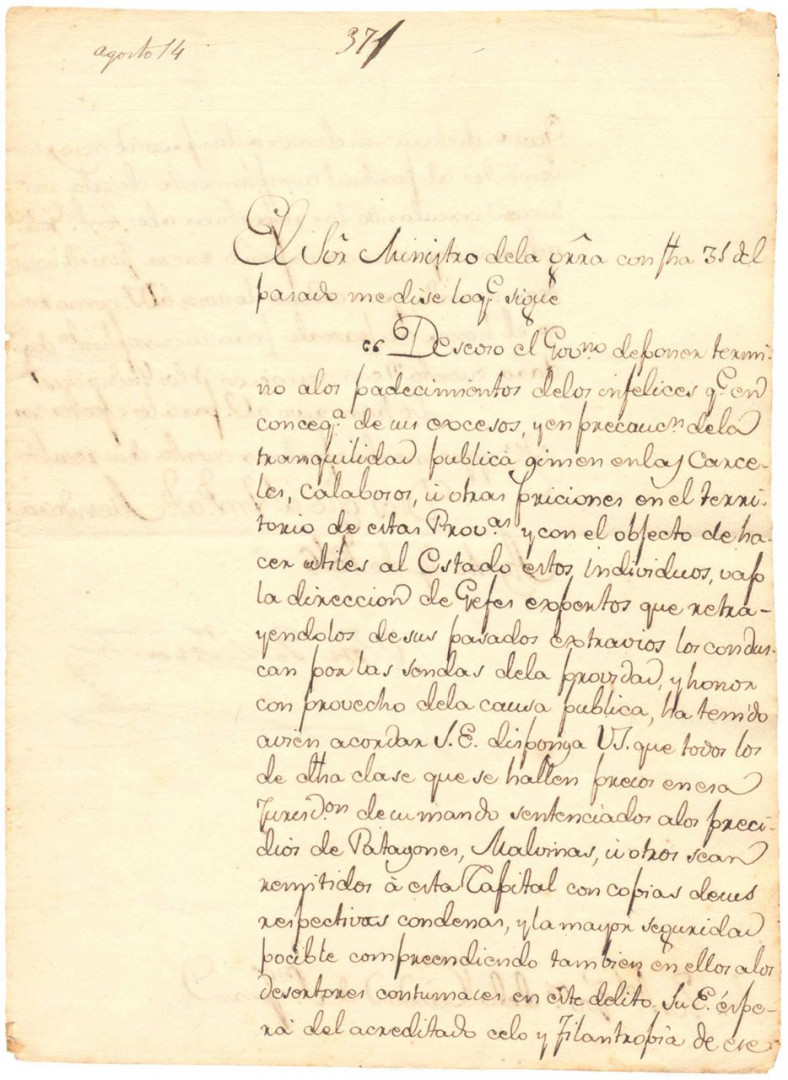 agosto 14
371
El Sõr Ministro dela grra con fha 31 del
pasado me dise loq.e sigue
"Deseoso el Gov.no deponer termi-
no alos padecimientos delos infelices q.e en
conceq.a de sus excesos, yen precauc.n dela
tranquilidad publica gimen enlas Carce-
les, calabosos, ù otras priciones en el terri-
torio de estas Prov.as y con el objecto de ha-
cer utiles al Estado estos individuos, vajo
la direccion de Gefes expertos que retra-
yendolos desus pasados extravios los condus-
can por las sendas dela providad, y honor
con provecho dela causa publica, ha tenido
avien acordar S.E. disponga VS. que todos los
de dha clase que se hallen precos enesa
Jurisd.on desumando sentenciados alos preci-
dios de Patagones, Malvinas, ù otros sean
remitidos à esta Capital con copias desus
respectivas condenas, y la mayor seguridad
pocible compreendiendo tambien en ellos alos
desertores contumaces en este delito. Su E. espe-
ra del acreditado celo y Filantropia de ese